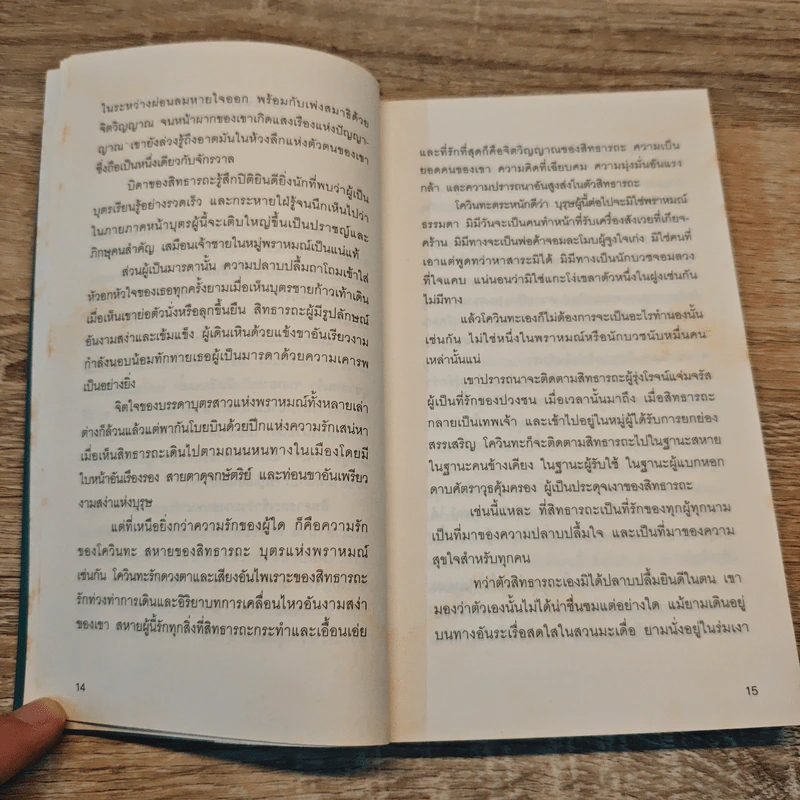 ในระหว่างผ่อนลมหายใจออก พร้อมกับเพ่งสมาธิด้วย
จิตวิญญาณ จนหน้าผากของเขาเกิดแสงเรืองแห่งปัญญา-
ญาณ เขายังล่วงรู้ถึงอาตมันในห้วงลึกแห่งตัวตนของเขา
ซึ่งถือเป็นหนึ่งเดียวกับจักรวาล
บิดาของสิทธารถะรู้สึกปิติยินดียิ่งนักที่พบว่าผู้เป็น
บุตรเรียนรู้อย่างรวดเร็ว และกระหายใฝ่รู้จนนึกเห็นไปว่า
ในภายภาคหน้าบุตรผู้นี้จะเติบใหญ่ขึ้นเป็นปราชญ์และ
ภิกษุคนสำคัญ เสมือนเจ้าชายในหมู่พราหมณ์เป็นแน่แท้
ส่วนผู้เป็นมารดานั้น ความปลาบปลื้มถาโถมเข้าใส่
หัวอกหัวใจของเธอทุกครั้งยามเมื่อเห็นบุตรชายก้าวเท้าเดิน
เมื่อเห็นเขาย่อตัวนั่งหรือลุกขึ้นยืน สิทธารถะผู้มีรูปลักษณ์
อันงามสง่าและเข้มแข็ง ผู้เดินเหินด้วยแข้งขาอันเรียวงาม
กำลังนอบน้อมทักทายเธอผู้เป็นมารดาด้วยความเคารพ
เป็นอย่างยิ่ง
จิตใจของบรรดาบุตรสาวแห่งพราหมณ์ทั้งหลายเล่า
ต่างก็ล้วนแล้วแต่พากันโบยบินด้วยปีกแห่งความรักเสน่หา
เมื่อเห็นสิทธารถะเดินไปตามถนนหนทางในเมืองโดยมี
ใบหน้าอันเรืองรอง สายตาดุจกษัตริย์ และท่อนขาอันเพรียว
งามสง่าแห่งบุรุษ
แต่ที่เหนือยิ่งกว่าความรักของผู้ใด ก็คือความรัก
ของโควินทะ สหายของสิทธารถะ บุตรแห่งพราหมณ์
เช่นกัน โควินทะรักดวงตาและเสียงอันไพเราะของสิทธารถะ
รักท่วงท่าการเดินและอิริยาบทการเคลื่อนไหวอันงามสง่า
ของเขา สหายผู้นี้รักทุกสิ่งที่สิทธารถะกระทำและเอื้อนเอ่ย
14
และที่รักที่สุดก็คือจิตวิญญาณของสิทธารถะ ความเป็น
ยอดคนของเขา ความคิดที่เฉียบคม ความมุ่งมั่นอันแรง
กล้า และความปรารถนาอันสูงส่งในตัวสิทธารถะ
โควินทะตระหนักดีว่า บุรุษผู้นี้ต่อไปจะมิใช่พราหมณ์
ธรรมดา มิมีวันจะเป็นคนทำหน้าที่รับเครื่องสังเวยที่เกียจ-
คร้าน มิมีทางจะเป็นพ่อค้าจอมละโมบผู้จูงใจเก่ง มิใช่คนที่
เอาแต่พูดทว่าหาสาระมิได้ มิมีทางเป็นนักบวชจอมลวง
ที่ใจแคบ แน่นอนว่ามิใช่แกะโง่เขลาตัวหนึ่งในฝูงเช่นกัน
ไม่มีทาง
แล้วโควินทะเองก็ไม่ต้องการจะเป็นอะไรทำนองนั้น
เช่นกัน ไม่ใช่หนึ่งในพราหมณ์หรือนักบวชนับหมื่นคน
เหล่านั้นแน่
เขาปรารถนาจะติดตามสิทธารถะผู้รุ่งโรจน์แจ่มจรัส
ผู้เป็นที่รักของปวงชน เมื่อเวลานั้นมาถึง เมื่อสิทธารถะ
กลายเป็นเทพเจ้า และเข้าไปอยู่ในหมู่ผู้ได้รับการยกย่อง
สรรเสริญ โควินทะก็จะติดตามสิทธารถะไปในฐานะสหาย
ในฐานะคนข้างเคียง ในฐานะผู้รับใช้ ในฐานะผู้แบกหอก
ดาบศัตราวุธคุ้มครอง ผู้เป็นประดุจเงาของสิทธารถะ
เช่นนี้แหละ ที่สิทธารถะเป็นที่รักของทุกผู้ทุกนาม
เป็นที่มาของความปลาบปลื้มใจ และเป็นที่มาของความ
สุขใจสำหรับทุกคน
ทว่าตัวสิทธารถะเองมิได้ปลาบปลื้มยินดีในตน เขา
มองว่าตัวเองนั้นไม่ได้น่าชื่นชมแต่อย่างใด แม้ยามเดินอยู่
บนทางอันระเรื่อสดใสในสวนมะเดื่อ ยามนั่งอยู่ในร่มเงา
15